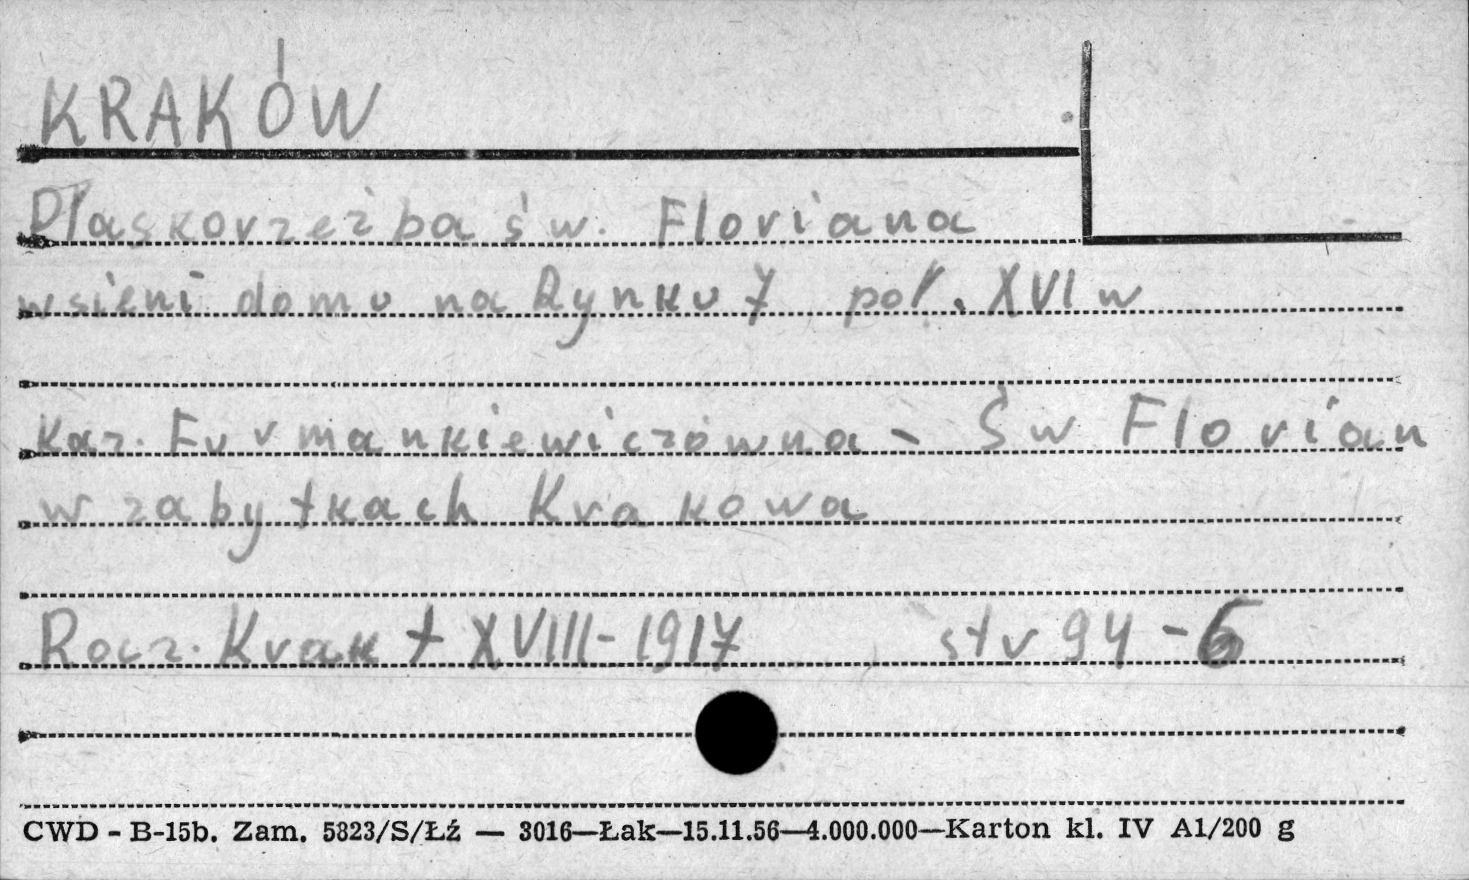 KRAKÓW
Płaskorzeźba św. Floriana
w sieni domu na Rynku 7 poł. XVI w
Kaz. Furmankiewiczówna - Św Florian
w zabytkach Krakowa
Rocz. Krak t XVIII-1917 str 94-6
CWD - B-15b. Zam. 5823/S/Łź — 3016—Łak—15.11.56—4.000.000—Karton kl. IV A1/200 g